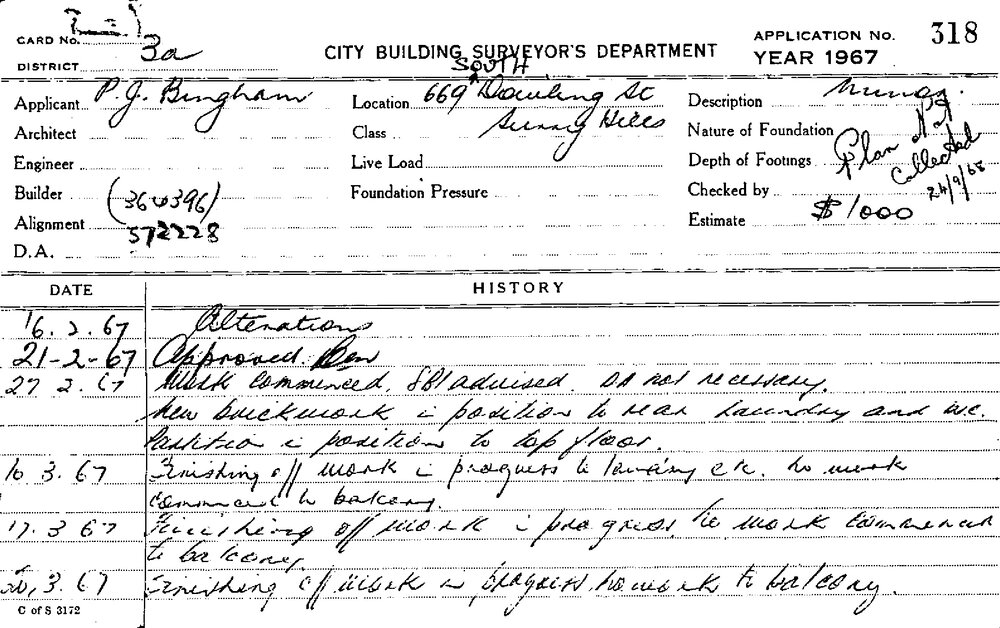 CARD No.
DISTRICT 3a
CITY BUILDING SURVEYOR'S DEPARTMENT
APPLICATION No. 318
YEAR 1967
Applicant P. J. Bingham
Location 669 SOUTH Dowling St
Description Minor.
Architect
Class Surry Hills
Nature of Foundation
Engineer
Live Load
Depth of Footings
Plan Not
Collected
24/9/68
Builder (360396)
Foundation Pressure
Checked by
Alignment 572228
Estimate $1000
D.A.
DATE HISTORY
16.2.67 Alterations
21-2-67 Approved
27 2.67 Work Commenced. SBI advised. DA not necessary.
New brickwork in position to rear laundry and wc.
Partition in position to top floor.
10 3.67 Finishing off work in progress to etc. No work
commenced to balcony.
17.3 67 Finishing off work in progress no work commenced
to balcony.
3.67 Finishing off work in progress. no work to balcony.
C of S 3172